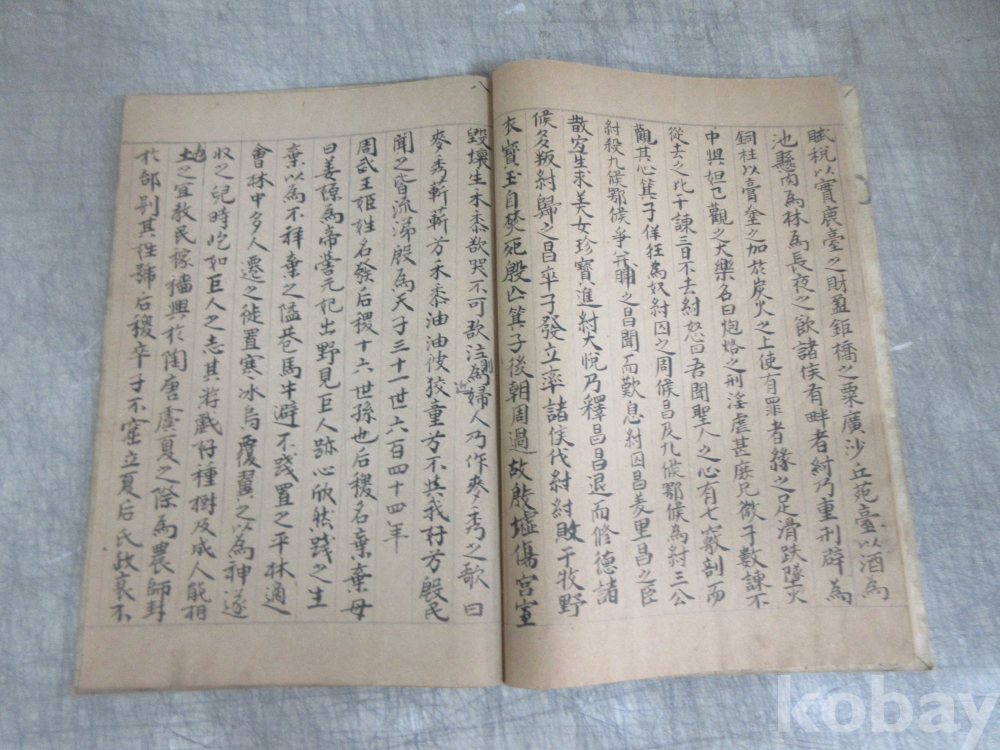 賦稅以實鹿臺之財盈鉅橋之粟廣沙丘苑臺以酒爲
池懸肉爲林爲長夜之飮諸侯有畔者紂乃重刑辟爲
銅柱以膏塗之加於炭火之上使有罪者緣之足滑跌墜火
中與妲己觀之大樂名曰炮烙之刑淫虐甚庶兄微子數諫不
從去之比干諫三日不去紂怒曰吾聞聖人之心有七竅剖而
觀其心箕子佯狂爲奴紂囚之周侯昌及九侯鄂侯爲紂三公
紂殺九侯鄂侯爭幷脯之昌聞而歎息紂囚昌羑里昌之臣
散宜生求美女珍寶進紂大悅乃釋昌昌退而修德諸
侯多叛紂歸之昌卒子發立率諸侯伐紂紂敗于牧野
衣寶玉自焚死殷亡箕子後朝周過故殷墟傷宮室
八
毁壞生禾黍欲哭不可欲泣則爲近婦人乃作麥秀之歌曰
麥秀蔪蔪兮禾黍油油彼狡童兮不與我好兮殷民
聞之皆流涕殷爲天子三十一世六百四十四年
周武王姬姓名發后稷十六世孫也后稷名棄棄母
曰姜嫄爲帝嚳元妃出野見巨人跡心欣然踐之生
棄以爲不祥棄之隘巷馬牛避不踐置之平林適
會林中多人遷之徙置寒冰鳥覆翼之以爲神遂
收之兒時屹如巨人之志其游戲好種樹及成人能相
地土之宜敎民稼穡興於陶唐虞夏之際爲農師封
於邰別其姓號后稷卒子不窋立夏后氏政衰不
kobay